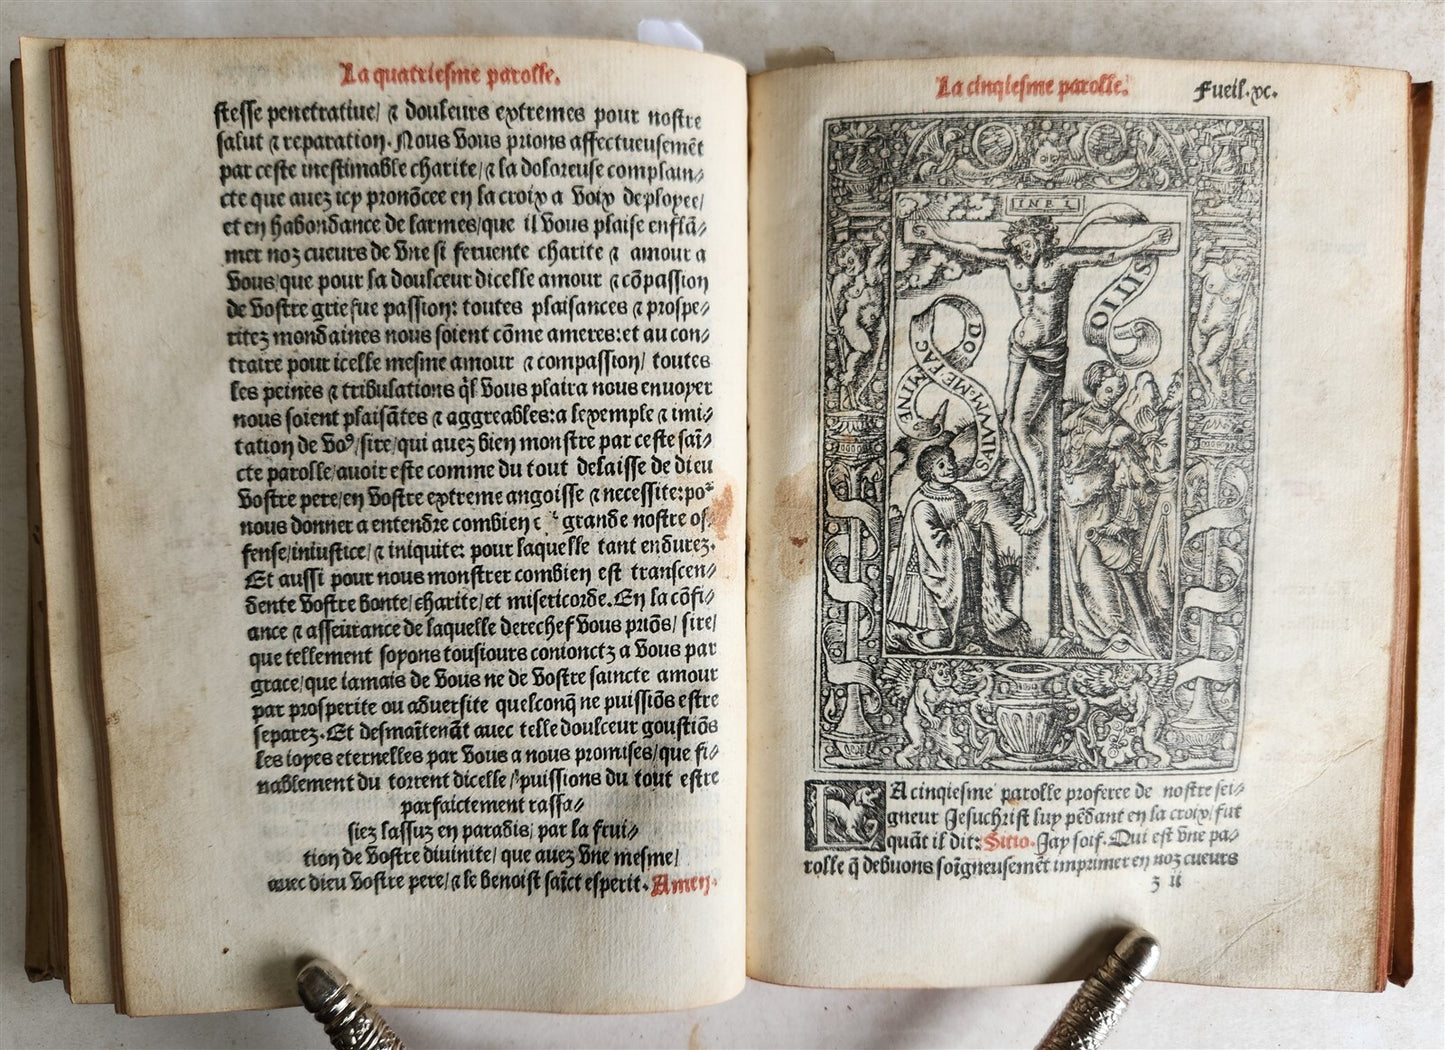 La quatriesme parolle.
stesse penetratiue/ ⁊ douleurs extremes pour nostre
salut ⁊ reparation. Nous vous prions affectueusemēt
par ceste inestimable charite/ ⁊ la doloreuse complain⸗
cte que auez icy pronōcee en la croix a voix deployee/
et en habondance de larmes/ que il vous plaise enflā⸗
mer noz cueurs de vne si feruente charite ⁊ amour a
vous/ que pour la doulceur dicelle amour ⁊ cōpassion
de vostre griefue passion: toutes plaisances ⁊ prospe⸗
ritez mondaines nous soient cōme ameres: et au con⸗
traire pour icelle mesme amour ⁊ compassion/ toutes
les peines ⁊ tribulations ql̄ vous plaira nous enuoyer
nous soient plaisātes ⁊ aggreables: a lexemple ⁊ imi⸗
tation de voꝰ/ sire/ qui auez bien monstre par ceste saī⸗
cte parolle/ auoir este comme du tout delaisse de dieu
vostre pere/ en vostre extreme angoisse ⁊ necessite: poᷣ
nous donner a entendre combien grande nostre of⸗
fense/ iniustice/ ⁊ iniquite: pour laquelle tant endurez.
Et aussi pour nous monstrer combien est transcen⸗
dente vostre bonte/ charite/ et misericorde. En la cōfi⸗
ance ⁊ asseurance de laquelle derechef vous priōs/ sire/
que tellement soyons tousiours conionctz a vous par
grace/ que iamais de vous ne de vostre saincte amour
par prosperite ou aduersite quelconq̄ ne puissiōs estre
separez. Et desmaītenāt auec telle doulceur goustiōs
les ioyes eternelles par vous a nous promises/ que fi⸗
nablement du torrent dicelle/ puissions du tout estre
parfaictement rassa⸗
siez lassuz en paradis/ par la frui⸗
tion de vostre diuinite/ que auez vne mesme/
auec dieu vostre pere/ ⁊ le benoist saīct esperit. Amen.
La cinqiesme parolle. Fueil. xc.
INRI
SITIO
DOMINE ME FAC
SALVVM
LA cinqiesme parolle proferee de nostre sei⸗
gneur Jesuchrist luy pēdant en la croix/ fut
quāt il dit: Sitio. Jay soif. Qui est vne pa⸗
rolle q̄ debuons soīgneusemēt imprimer en noz cueurs
z ii